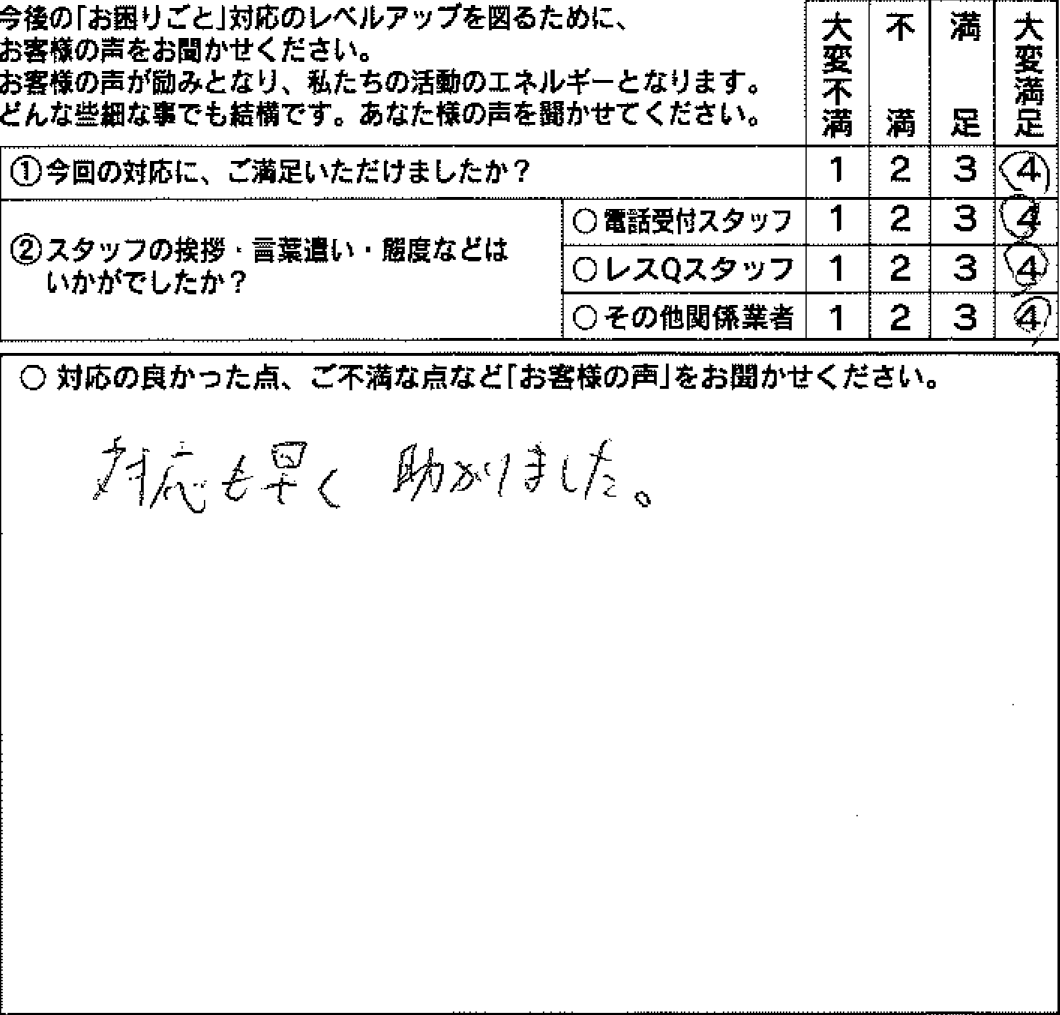 今後の「お困りごと」対応のレベルアップを図るために、
お客様の声をお聞かせください。
お客様の声が励みとなり、私たちの活動のエネルギーとなります。
どんな些細な事でも結構です。あなた様の声を聞かせてください。
大変不満 不満 満足 大変満足
①今回の対応に、ご満足いただけましたか? 1 2 3 4
②スタッフの挨拶・言葉遣い・態度などは
いかがでしたか?
○電話受付スタッフ 1 2 3 4
○レスQスタッフ 1 2 3 4
○その他関係業者 1 2 3 4
○ 対応の良かった点、ご不満な点など「お客様の声」をお聞かせください。
対応も早く 助かりました。